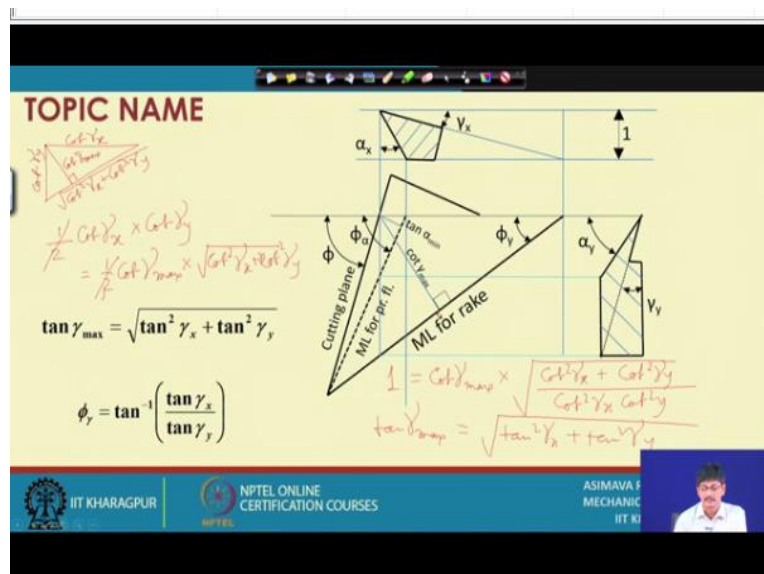 TOPIC NAME
cot γx
cot γy
cot γmax
√cot²γx + cot²γy
1/2 cot γx × cot γy
= 1/2 cot γmax × √cot²γx + cot²γy
tan γmax = √tan² γx + tan² γy
ϕγ = tan⁻¹(tan γx / tan γy)
αx
γx
1
ϕ
ϕα
tan αmin
cot γmax
ϕγ
αy
γy
Cutting plane
ML for pr. fl.
ML for rake
1 = cot γmax × √(cot²γx + cot²γy / cot²γx cot²y)
tan γmax = √tan²γx + tan²γy
IIT KHARAGPUR
NPTEL
NPTEL ONLINE
CERTIFICATION COURSES
ASIMAVA
MECHANIC
IIT K